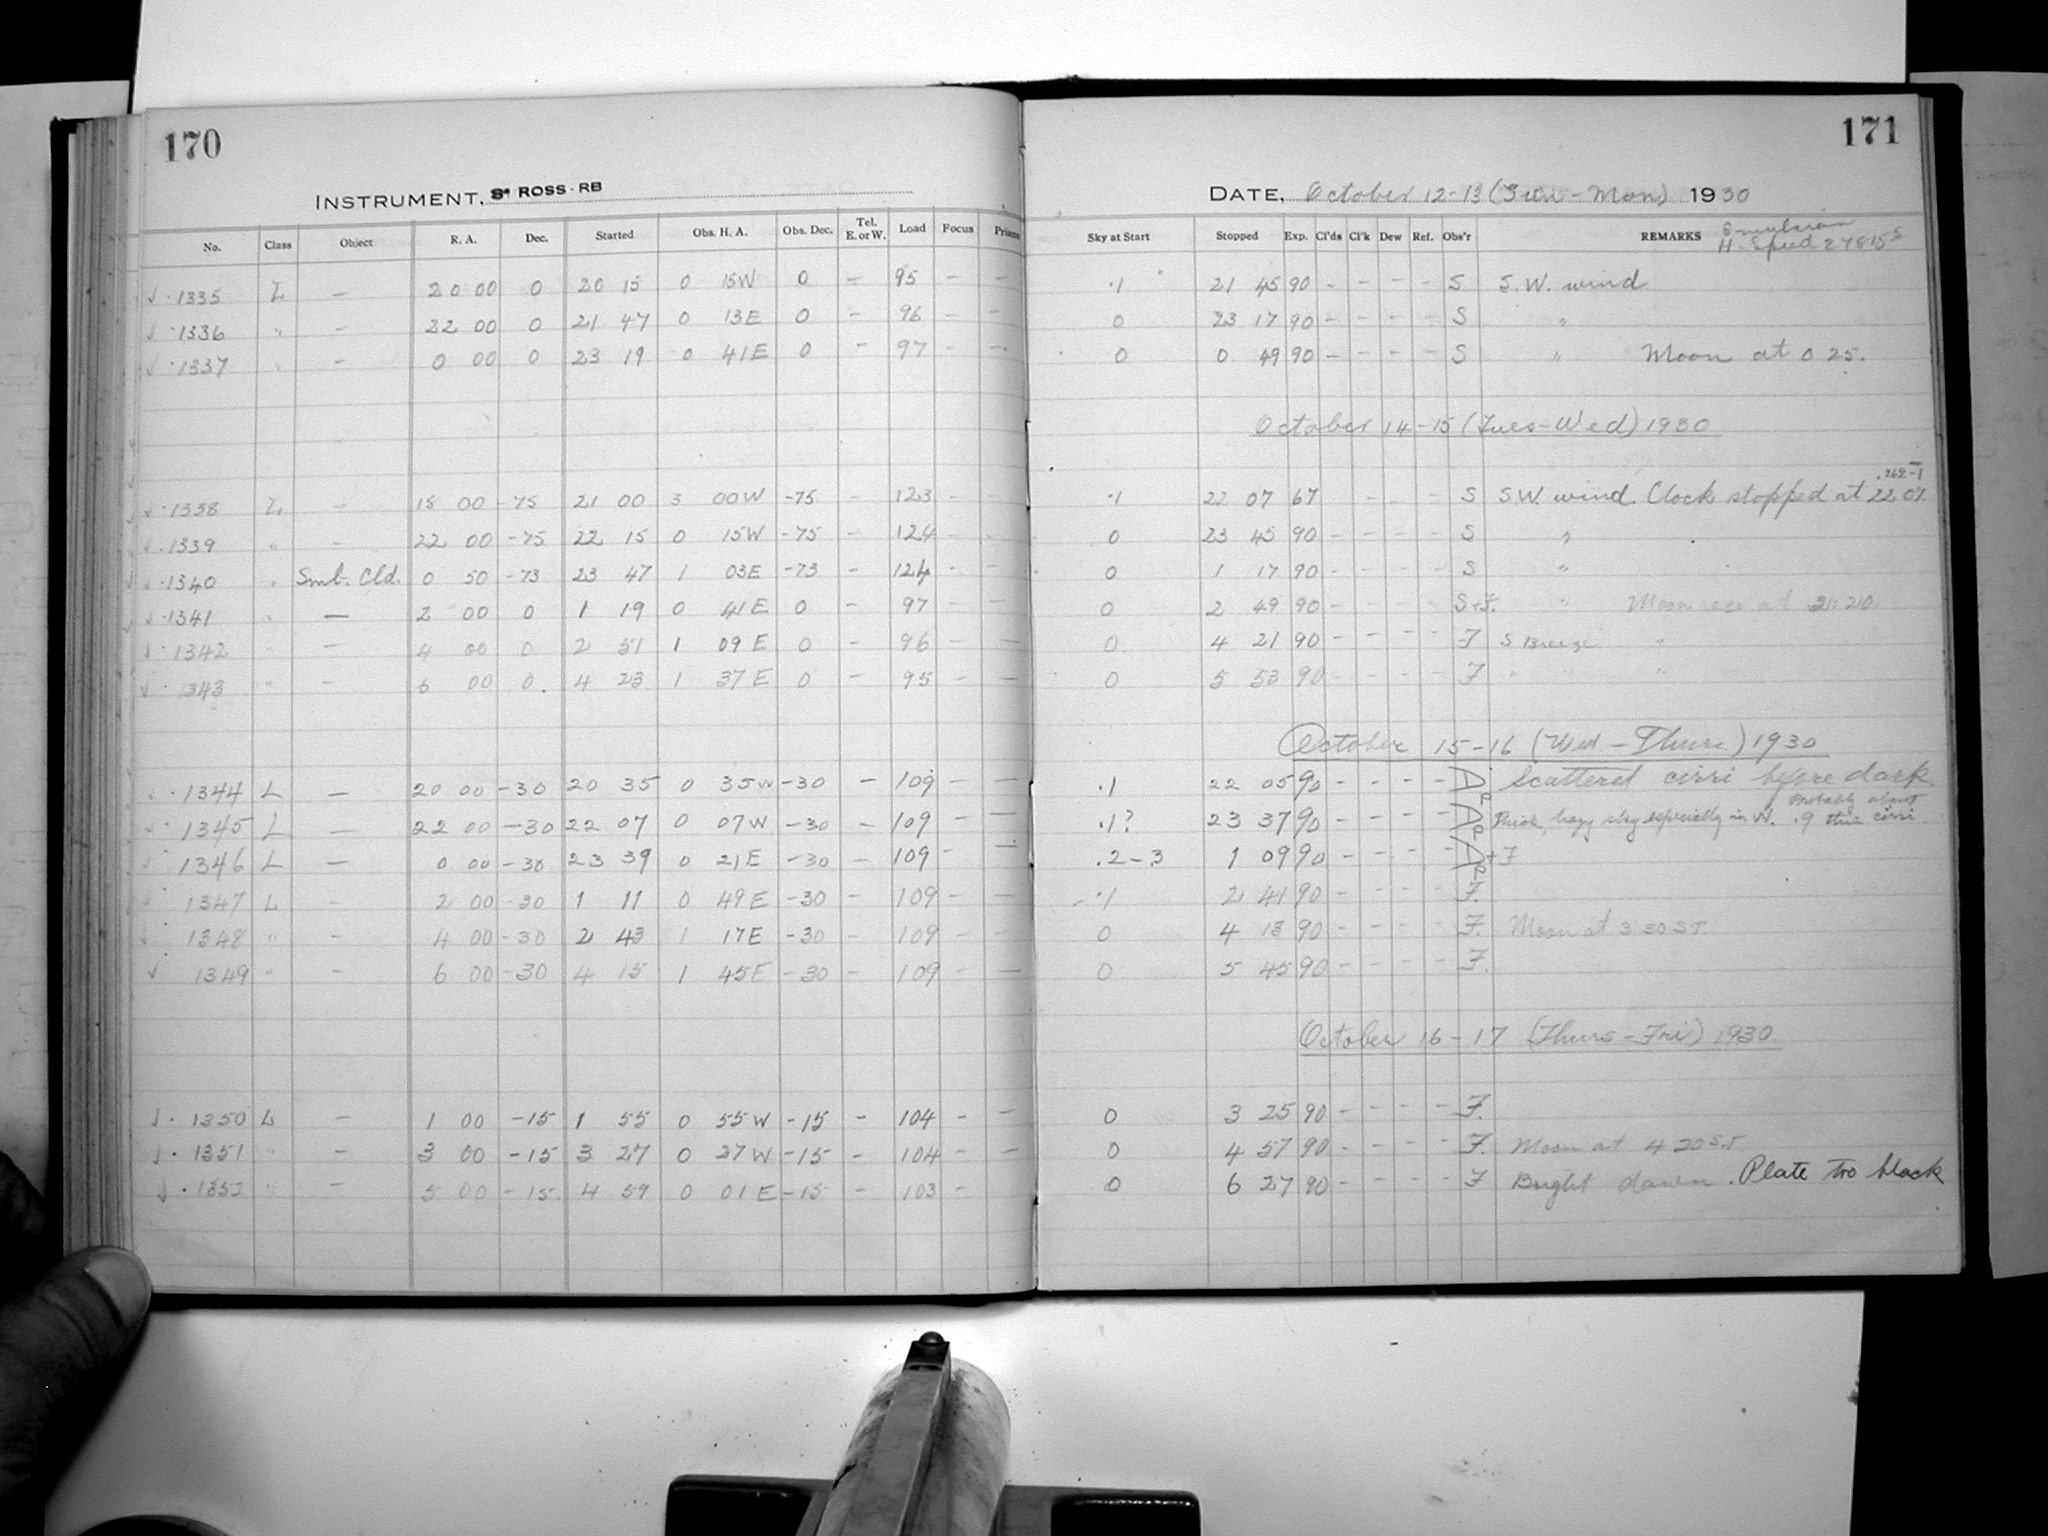 170
INSTRUMENT, 3" ROSS-RB
No. Class Object R. A. Dec. Started Obs. H. A. Obs. Dec. Tel. E. or W. Load Focus Prisms
√ · 1335 L — 20 00 0 20 15 0 15W 0 — 95 — —
√ · 1336 " — 22 00 0 21 47 0 13E 0 — 96 — —
√ · 1337 " — 0 00 0 23 19 0 41E 0 — 97 — —
√ · 1338 L — 15 00 -75 21 00 3 00W -75 — 123 — —
√ · 1339 " — 22 00 -75 22 15 0 15W -75 — 124 — —
√ · 1340 " Smb. Cld. 0 50 -73 23 47 1 03E -73 — 124 — —
√ · 1341 " — 2 00 0 1 19 0 41E 0 — 97 — —
√ · 1342 " — 4 00 0 2 51 1 09E 0 — 96 — —
√ · 1343 " — 6 00 0 4 23 1 37E 0 — 95 — —
√ · 1344 L — 20 00 -30 20 35 0 35W -30 — 109 — —
√ · 1345 L — 22 00 -30 22 07 0 07W -30 — 109 — —
√ · 1346 L — 0 00 -30 23 39 0 21E -30 — 109 — —
√ · 1347 L — 2 00 -30 1 11 0 49E -30 — 109 — —
√ · 1348 " — 4 00 -30 2 43 1 17E -30 — 109 — —
√ 1349 " — 6 00 -30 4 15 1 45E -30 — 109 — —
√ · 1350 L — 1 00 -15 1 55 0 55W -15 — 104 — —
√ · 1351 " — 3 00 -15 3 27 0 27W -15 — 104 — —
√ · 1352 " — 5 00 -15 4 59 0 01E -15 — 103 —
171
DATE, October 12-13 (Sun-Mon) 1930
Sky at Start Stopped Exp. Cl'ds Cl'k Dew Ref. Obs'r REMARKS Emulsion
H. Speed 27815
.1 21 45 90 — — — — S S.W. wind
0 23 17 90 — — — — S "
0 0 49 90 — — — — S " Moon at 0 25.
October 14-15 (Tues-Wed) 1930
.1 22 07 67 — — — S S.W. wind. Clock stopped at 22 07.
0 23 45 90 — — — — S "
0 1 17 90 — — — — S "
0 2 49 90 — — — — S+F. " Moon rose at
0 4 21 90 — — — — F S Breeze "
0 5 53 90 — — — — F " " "
October 15-16 (Wed-Thurs) 1930
.1 22 05 90 — — — — Scattered cirri before dark
.1? 23 37 90 — — — — Thick, hazy sky especially in W. Probably about .9 thin cirri
.2-.3 1 09 90 — — — — +F
.1 2 41 90 — — — — F.
0 4 13 90 — — — — F. Moon at 3 30 S.T.
0 5 45 90 — — — — F.
October 16-17 (Thurs-Fri) 1930
0 3 25 90 — — — — F.
0 4 57 90 — — — — F. Moon at 4 20 S.T.
0 6 27 90 — — — — F Bright dawn. Plate too black